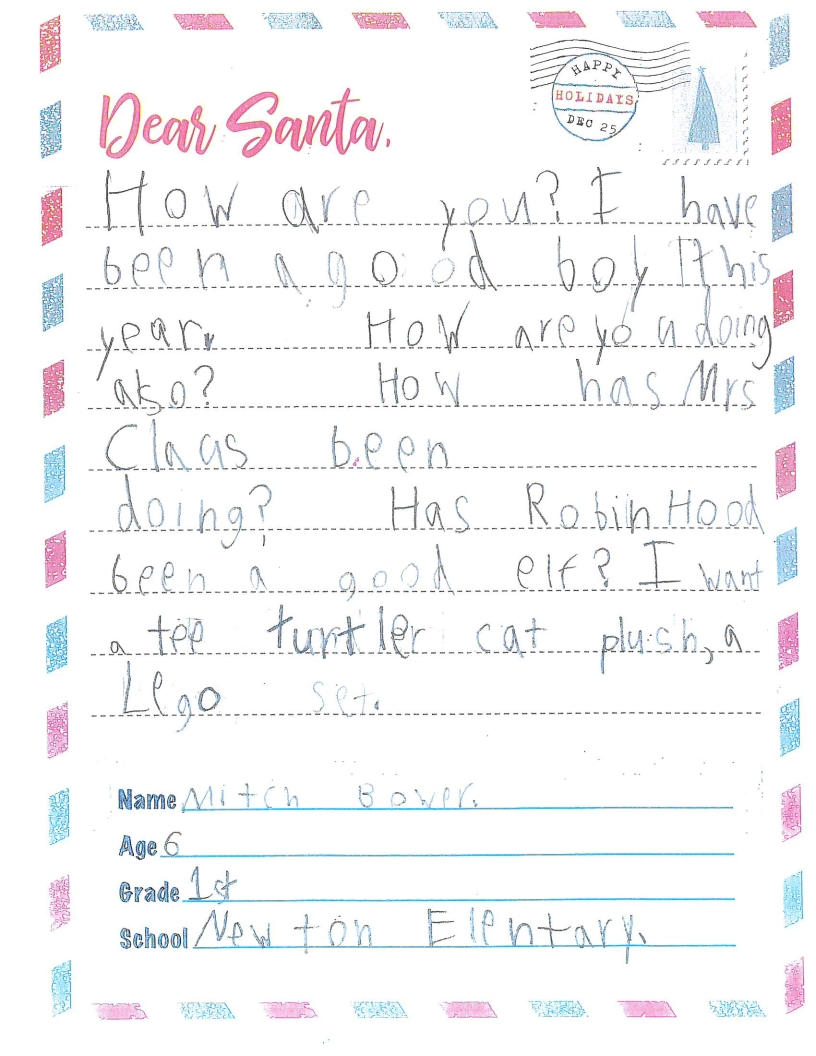 HAPPY
HOLIDAYS
DEC 25
Dear Santa,
How are you? I have
been a good boy this
year. How are yo u doing
also? How has Mrs
Claus been
doing? Has Robin Hood
been a good elf? I want
a tee turtler cat plush, a
Lego set.
Name Mitch Bower.
Age 6
Grade 1st
School Newton Elentary.